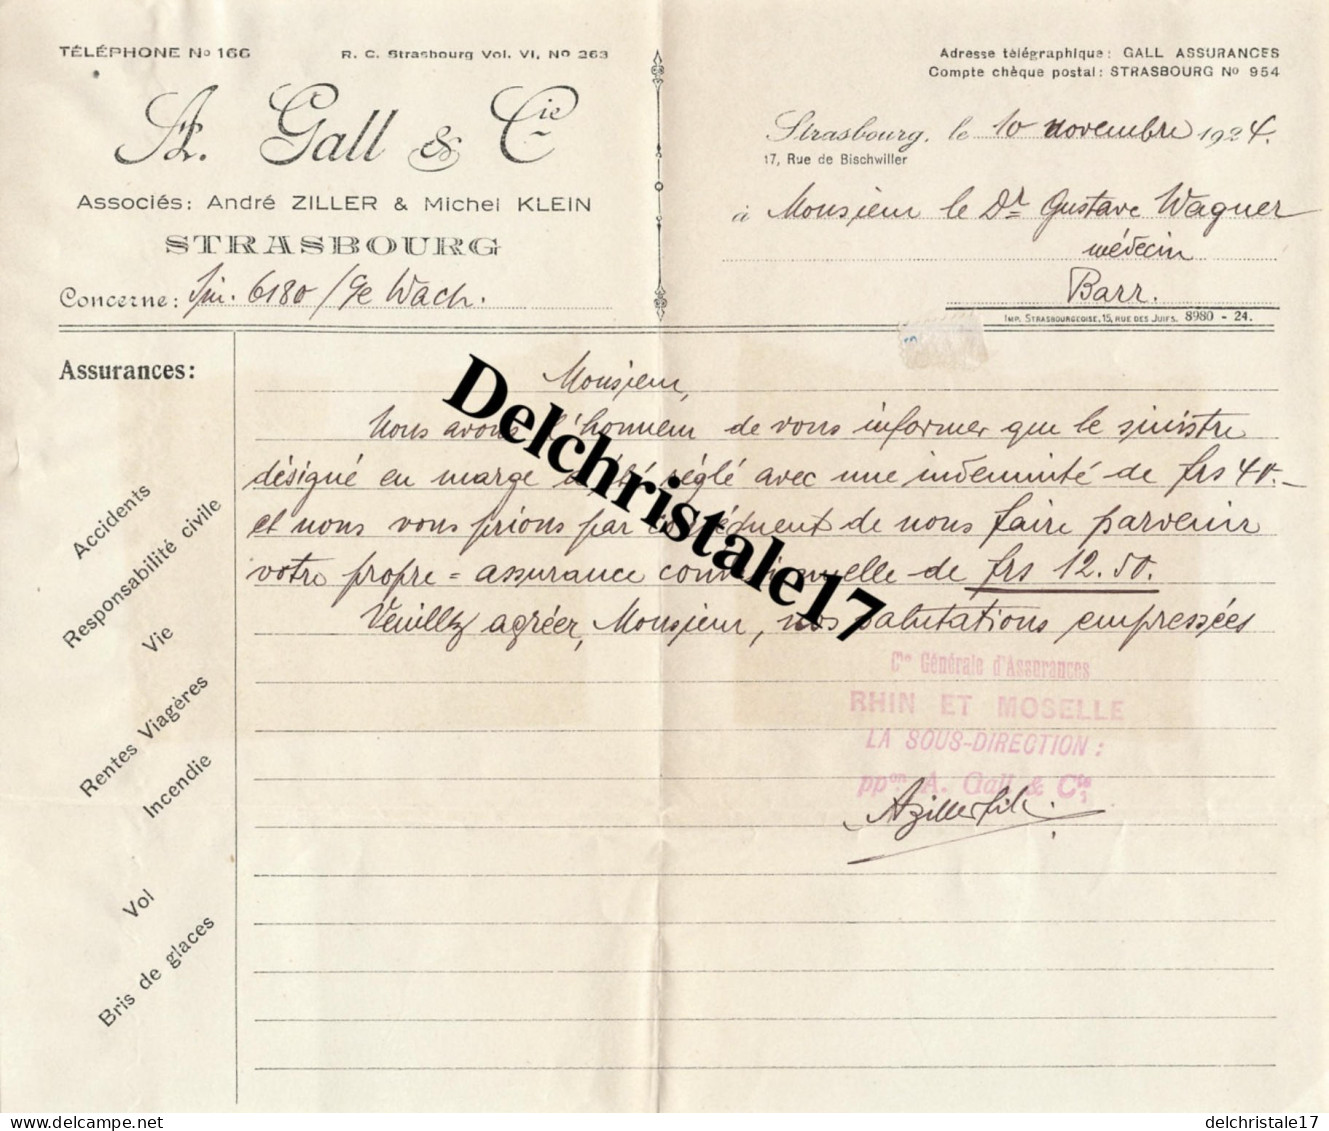 TÉLÉPHONE No 166
R. C. Strasbourg Vol. VI, No 263
Adresse télégraphique: GALL ASSURANCES
Compte chèque postal: STRASBOURG No 954
A. Gall & Cie
Associés: André ZILLER & Michel KLEIN
STRASBOURG
Concerne: Sin. 6180/Ge Wach.
Strasbourg, le 10 novembre 1924.
17, Rue de Bischwiller
à Monsieur le Dr Gustave Wagner
médecin
Barr.
IMP. STRASBOURGEOISE, 15, RUE DES JUIFS. 8980 - 24.
Assurances:
Accidents
Responsabilité civile
Vie
Rentes Viagères
Incendie
Vol
Bris de glaces
Monsieur,
Nous avons l'honneur de vous informer que le sinistre
désigné en marge a été réglé avec une indemnité de frs
et nous vous prions par conséquent de nous faire parvenir
votre propre=assurance conventionnelle de frs 12.50.
Veuillez agréer, Monsieur, nos salutations empressées
Cie Générale d'Assurances
RHIN ET MOSELLE
LA SOUS-DIRECTION:
ppon A. Gall & Cie
AZiller
Delchristale17
delchristale17